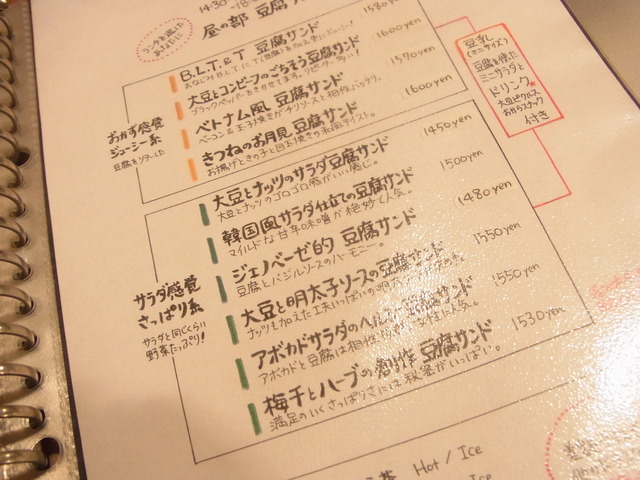 14:30
昼の部 豆腐サ
ランチを選んだ
あなたに
B.L.T.&T 豆腐サンド 1580yen
大豆とコンビーフのごちそう豆腐サンド 1600yen
ベトナム風 豆腐サンド 1570yen
ベーコン&玉子焼きがチリソースと相性バッチリ。
きつねのお月見 豆腐サンド 1600yen
お揚げときのこと目玉焼きの和風テイスト。
おかず感覚
ジューシー系
豆腐をソテーした
豆乳
(ミニサイズ)
豆腐を使った
ミニサラダと
ドリンク
大豆ピクルス
おからスナック
付き
大豆とナッツのサラダ豆腐サンド 1450yen
大豆とナッツのゴロゴロ感がいい感じ。
韓国風サラダ仕立ての豆腐サンド 1500yen
マイルドな甘辛味噌が絶妙で人気。
ジェノベーゼ的 豆腐サンド 1480yen
豆腐とバジルソースのハーモニー。
大豆と明太子ソースの豆腐サンド 1550yen
アボカドサラダのヘルシー豆腐サンド 1550yen
アボカドと豆腐は相性 女性に人気。
梅干とハーブの創作 豆腐サンド 1530yen
満足のいくさっぱりさには秘密がいっぱい。
サラダ感覚
さっぱり系
サラダと同じくらい
野菜たっぷり!
茶 Hot / Ice
Ice